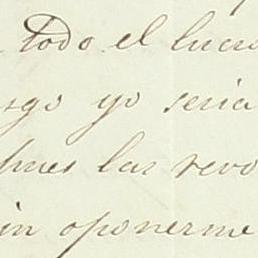 todo el lucro
sgo yo seria
pues las revo
in oponerme